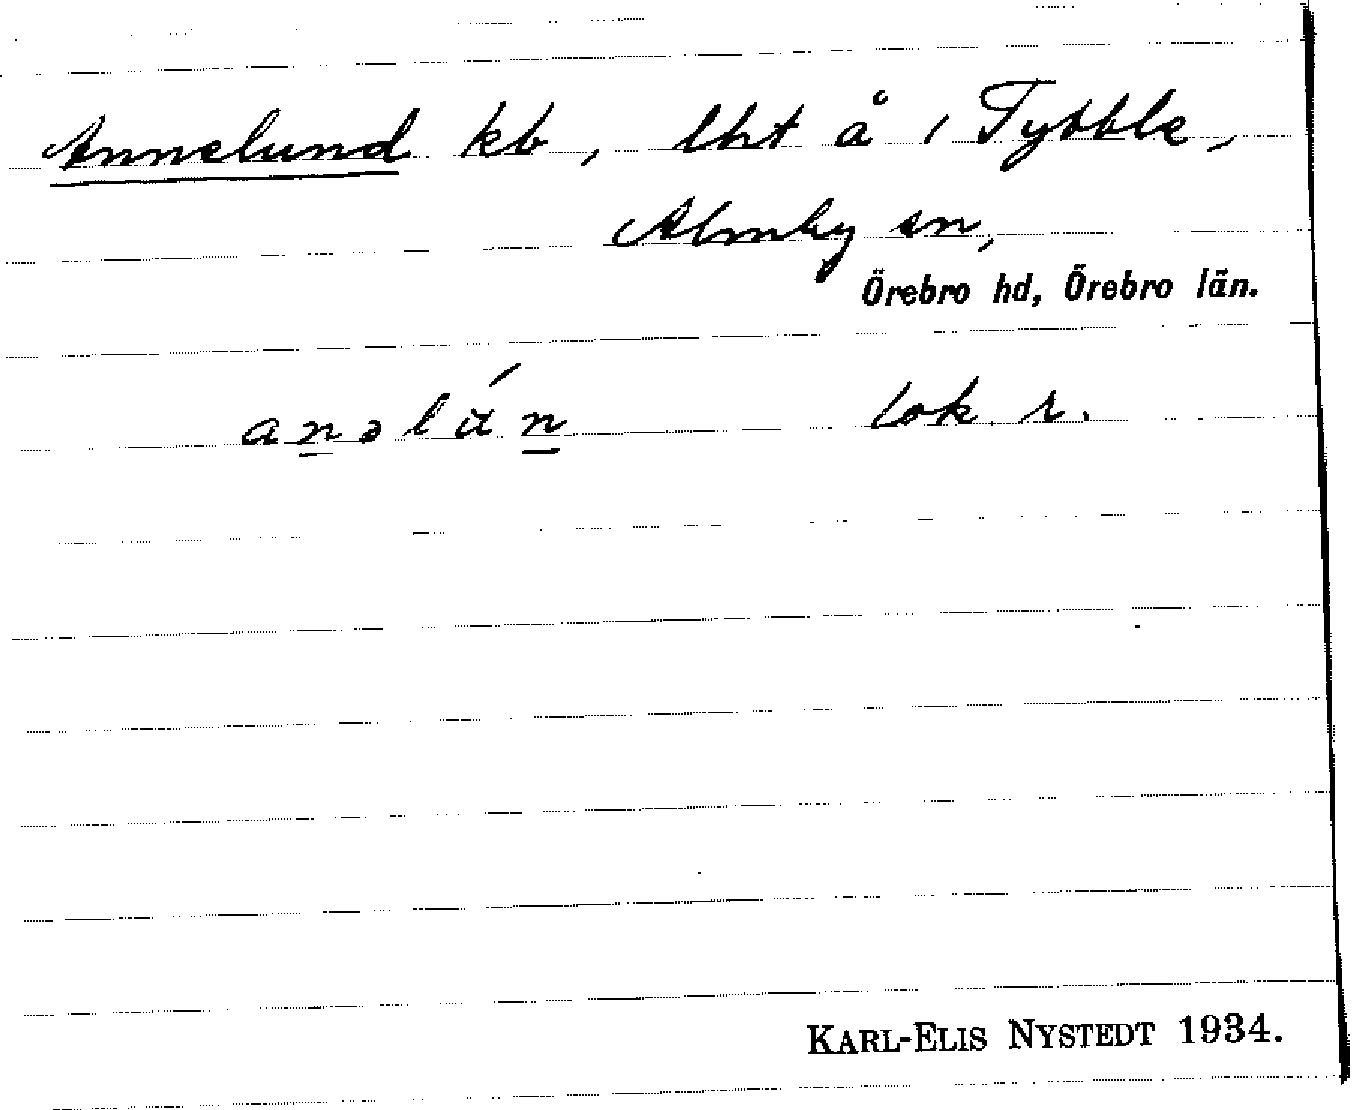 Annelund kb, lht å i Tybble,
Almby sn,
Örebro hd, Örebro län.
anəlán lok r.
KARL-ELIS NYSTEDT 1934.